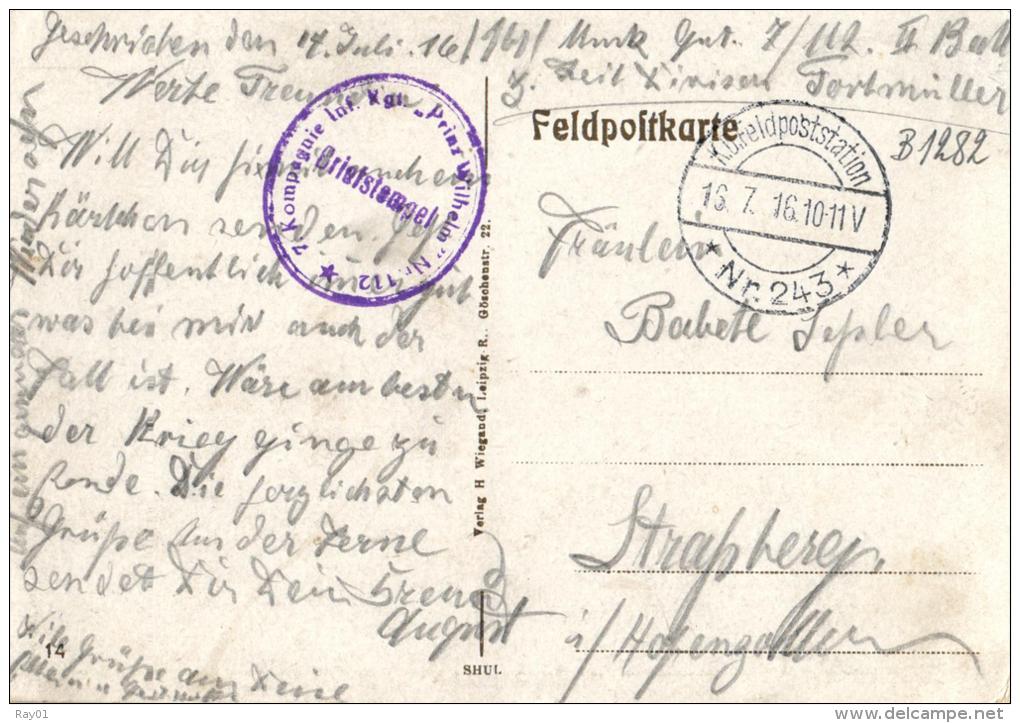 Geschrieben den 14. Juli. 16
Werte Freundin
Will Dir
Kärtchen senden.
Dir hoffentlich gut
was bei mir auch der
Fall ist. Wäre am besten
der Krieg ginge zu
Ende. Die herzlichsten
Grüße aus der Ferne
sendet Dir Dein Freund
August
Viele Grüße an Deine
14
7. Kompagnie Inf. Rgt. „Prinz Wilhelm" Nr. 112
Briefstempel
Verlag H Wiegand, Leipzig R., Göschenstr. 22.
SHUL
7/112. II Batl
Feldpostkarte
K.D.Feldpoststation
16. 7. 16.10-11V
* Nr. 243 *
B 1282
Fräulein
Babete
Straßberg.
i/Hohenzollern
Ray01
www.delcampe.net